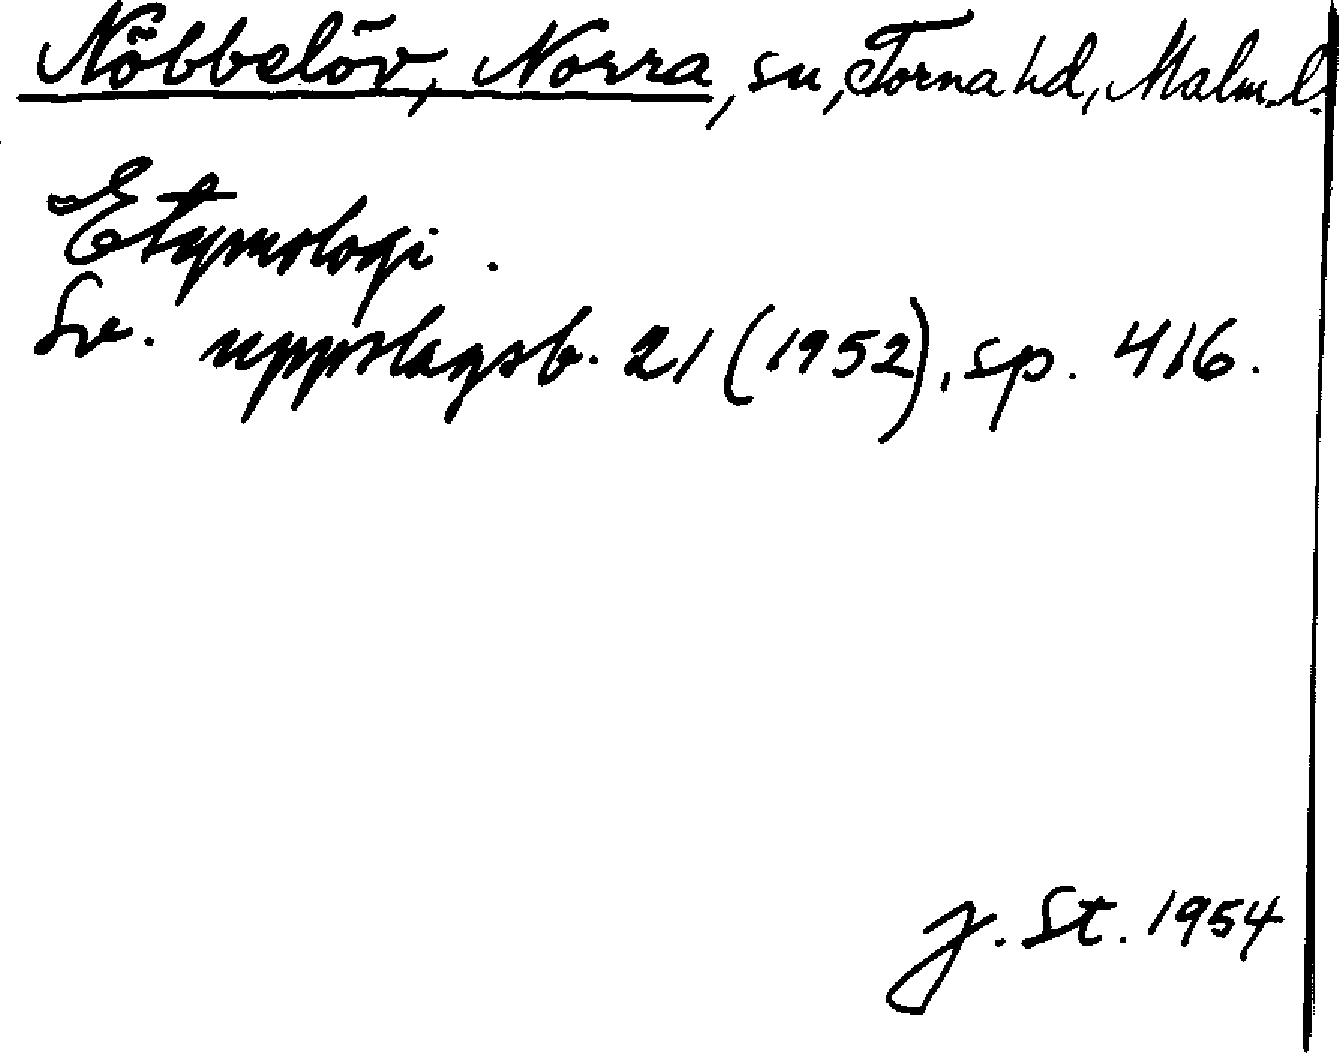 Nöbbelöv, Norra, sn, Torna hd, Malm. l.
Etymologi.
Sv. uppslagsb. 21 (1952), sp. 416.
J. St. 1954